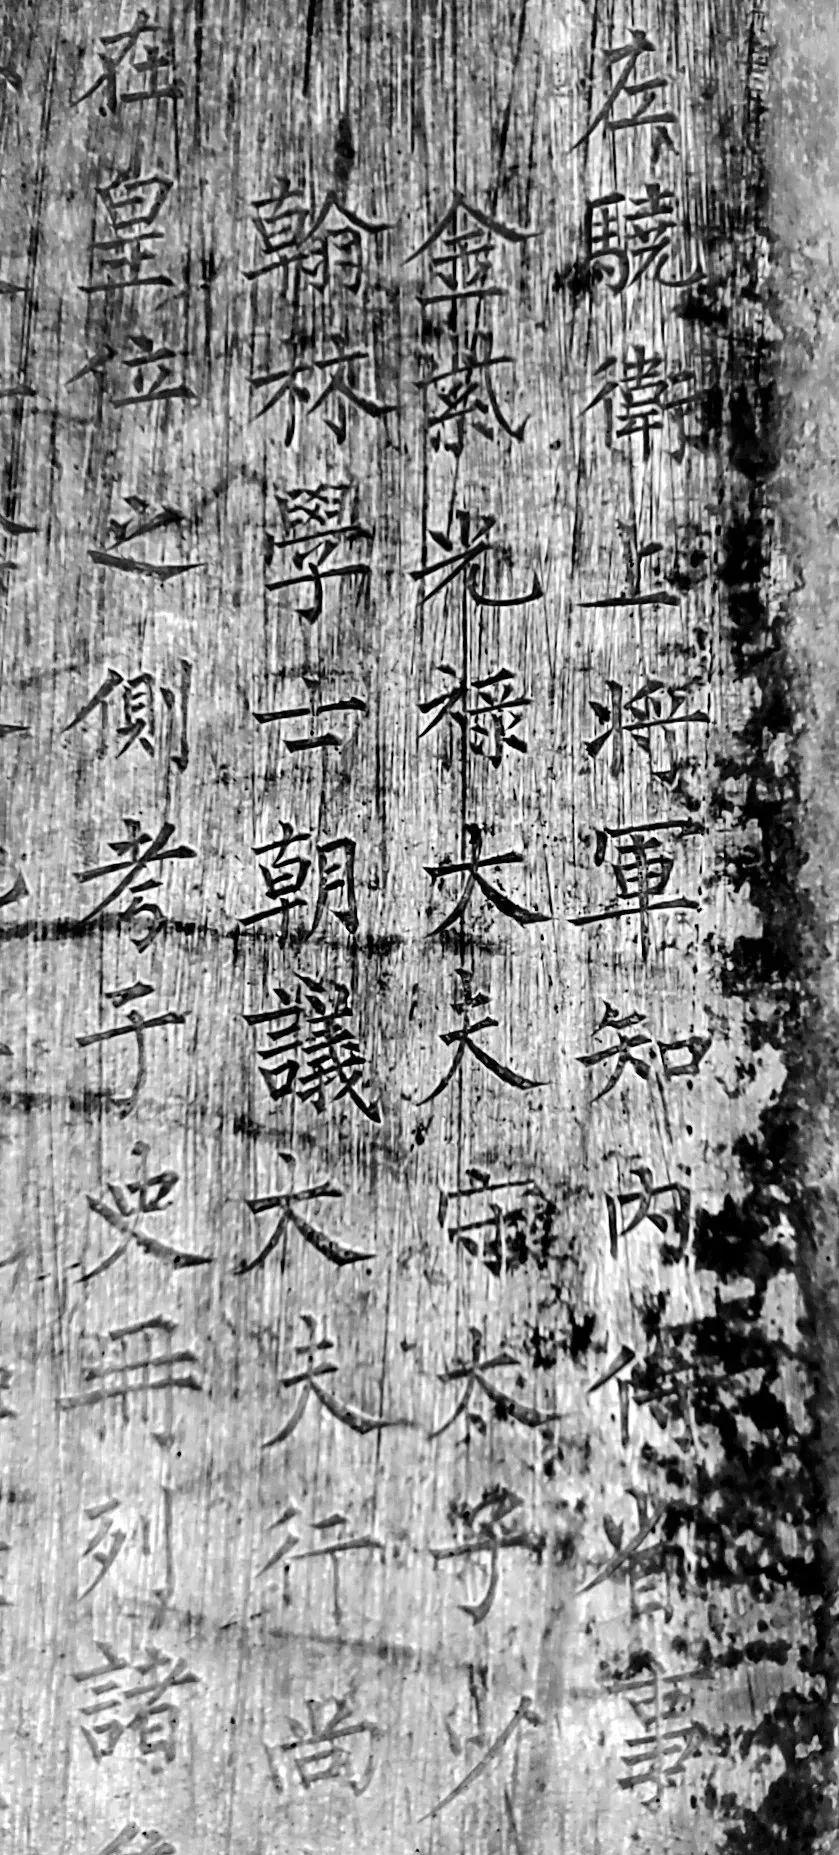 左驍衛上將軍知內侍省事
金紫光祿大夫守太子少
翰林學士朝議大夫行尚
在皇位之側考于史冊列諸